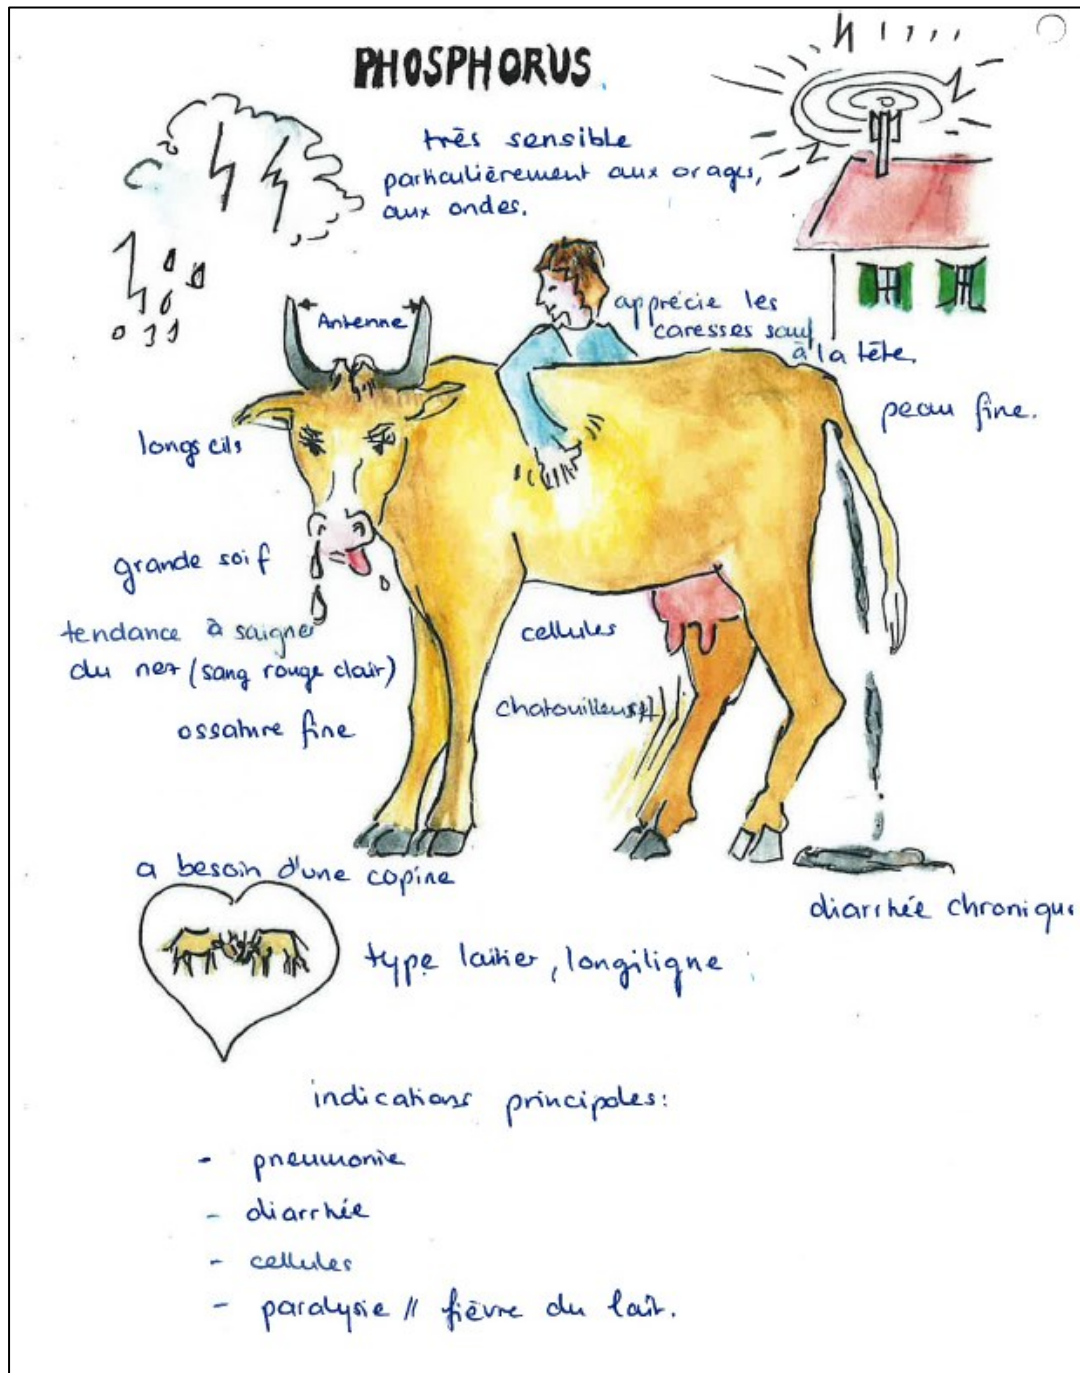 PHOSPHORUS
très sensible
particulièrement aux orages,
aux ondes.
Antenne
apprécie les
caresses sauf
à la tête.
peau fine.
longs cils
grande soif
tendance à saigner
du nez (sang rouge clair)
ossature fine
cellules
chatouilleuse
a besoin d'une copine
diarrhée chronique
type laitier, longiligne
indications principales:
- pneumonie
- diarrhée
- cellules
- paralysie // fièvre du lait.